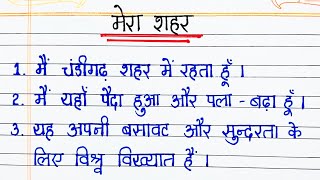 मेरा शहर
1. मैं चंडीगढ़ शहर में रहता हूँ ।
2. मैं यहाँ पैदा हुआ और पला - बढ़ा हूँ ।
3. यह अपनी बसावट और सुन्दरता के
लिए विश्व विख्यात हैं ।